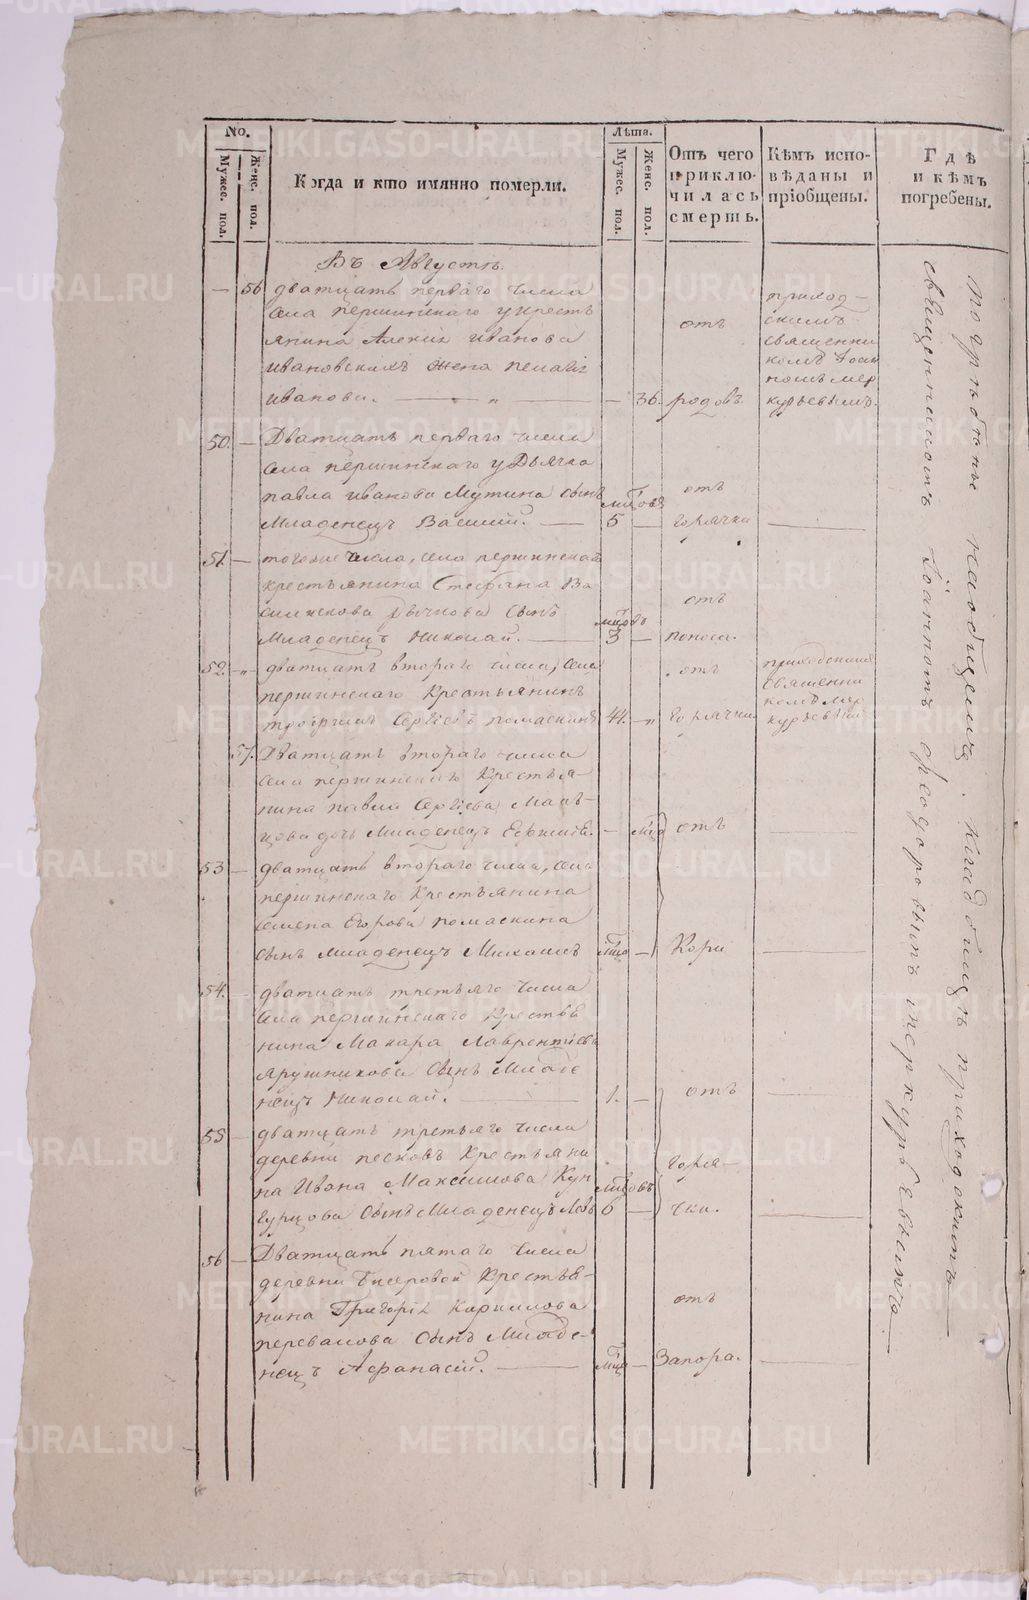 No.
Мужес. пол.
Женс. пол.
Когда и кто имянно померли.
Лѣта.
Мужес. пол.
Женс. пол.
Отъ чего
приклю-
чилась
смерть.
Кѣмъ испо-
вѣданы и
пріобщены.
Гдѣ
и кѣмъ
погребены.
Въ Августѣ.
— 56 дватцать перваго числа
села першинскаго у крестъ
янина Алексія Иванова
Ивановскихъ жена пелагія
Иванова. — „ — — 36.
отъ
родовъ
приход-
скимъ
священни
комъ Іоан
номъ мер
курьевымъ.
50. — Дватцать перваго числа
села першинскаго у Дьячка
павла Иванова Мутина сынъ
Младенецъ Василій. —
5 —
отъ
горячки
51. — тогоже числа, села першинскаго
крестьянина Стефана Ва
сынъ
Младенецъ Николай. —
3 —
отъ
поноса.
52. — „ дватцать втораго числа, села
першинскаго Крестьянинъ
Сергіевъ помаскинъ
44. — „
отъ
горячки
приходскимъ
священни
комъ Мер
курьевымъ
57. Дватцать втораго числа
села першинскаго Крестья-
нина павла Сергіева Маль-
цова дочь Младенецъ —
отъ
53 — дватцать втораго числа, села
першинскаго Крестьянина
семена Егорова помаскина
сынъ младенецъ Михаилъ
—
Кори
54. — дватцать третьяго числа
села першинскаго Крестья
нина Макара Лаврентіева
Ярушникова сынъ Младе
нецъ Николай. —
1. —
отъ
55 — дватцать третьяго числа
деревни песковъ Крестьяни
на Ивана Максимова Кун
гурцова сынъ Младенецъ Левъ
6 —
горя-
чки.
56 — Дватцать пятаго числа
деревни Крестья-
нина Григорія Кирилова
перевалова сынъ Младе-
нецъ Афанасій. —
—
отъ
Запора.
погребены на общемъ кладбищѣ приходскимъ
священникомъ Іоанномъ Феодоровымъ меркурьевымъ.